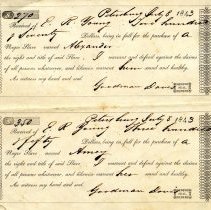 $270 Petersburg July 8 1843
Received of E. R. Young Two hundred
& Seventy Dollars, being in full for the purchase of a
Negro Slave named Alexander
the right and title of said Slave I warrant and defend against the claims
of all persons whatsoever, and likewise warrant him sound and healthy.
As witness my hand and seal
Goodman Davis
$350 Petersburg July 8 1843
Received of E. R. Young Three hundred
& fifty Dollars, being in full for the purchase of a
Negro Slave named Amey
the right and title of said Slave I warrant and defend against the claims
of all persons whatsoever, and likewise warrant her sound and healthy.
As witness my hand and seal
Goodman Davis